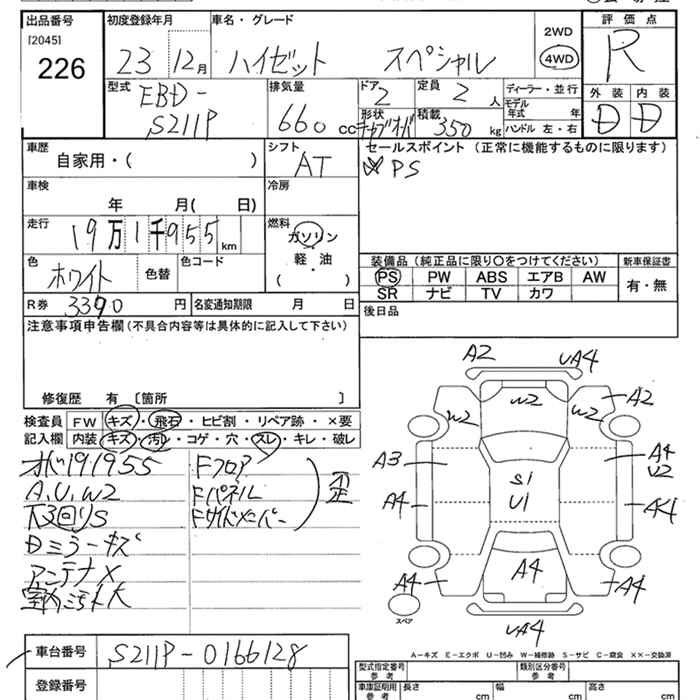 出品番号 初度登録年月 車名・グレード 2WD 評価点
[2045] 226 23 12月 ハイゼット スペシャル 4WD R
型式 排気量 ドア 定員 ディーラー・並行 外装 内装
EBD- S211P 660 cc 2 2 人 モデル年式 年 D D
形状 積載 350 kg ハンドル 左・右
車歴 シフト セールスポイント(正常に機能するものに限ります)
自家用・( ) AT PS
車検 冷房
年 月( 日)
走行 燃料
19万1千955km ガソリン
軽・油
( )
色 色替 色コード 装備品(純正品に限り○をつけてください) 新車保証書
ホワイト PS PW ABS エアB AW 有・無
SR ナビ TV カワ
R券 3390 円 名変通知期限 月 日 後日品
注意事項申告欄(不具合内容等は具体的に記入して下さい)
修復歴 有 [箇所 ]
検査員 FW キズ・飛石・ヒビ割・リペア跡・×要
記入欄 内装 キズ・汚れ・コゲ・穴・スレ・キレ・破レ
191955 Fフロア
A,U,W2 Fパネル 歪
下回りS Fサイドメンバー
Dミラーキズ
アンテナX
室内汚れ大
A2 UA4
W2 W2 W2 A2
A3 A4 U2
S1 U1
A4 A4
A4 A4 A4
UA4
スペア
A-キズ E-エクボ U-凹み W-補修跡 S-サビ C-腐食 ××-交換済
車台番号 S211P-0166128
登録番号
型式指定番号 参考 類別区分番号 参考
車庫証明用 参考 長さ cm 幅 cm 高さ cm